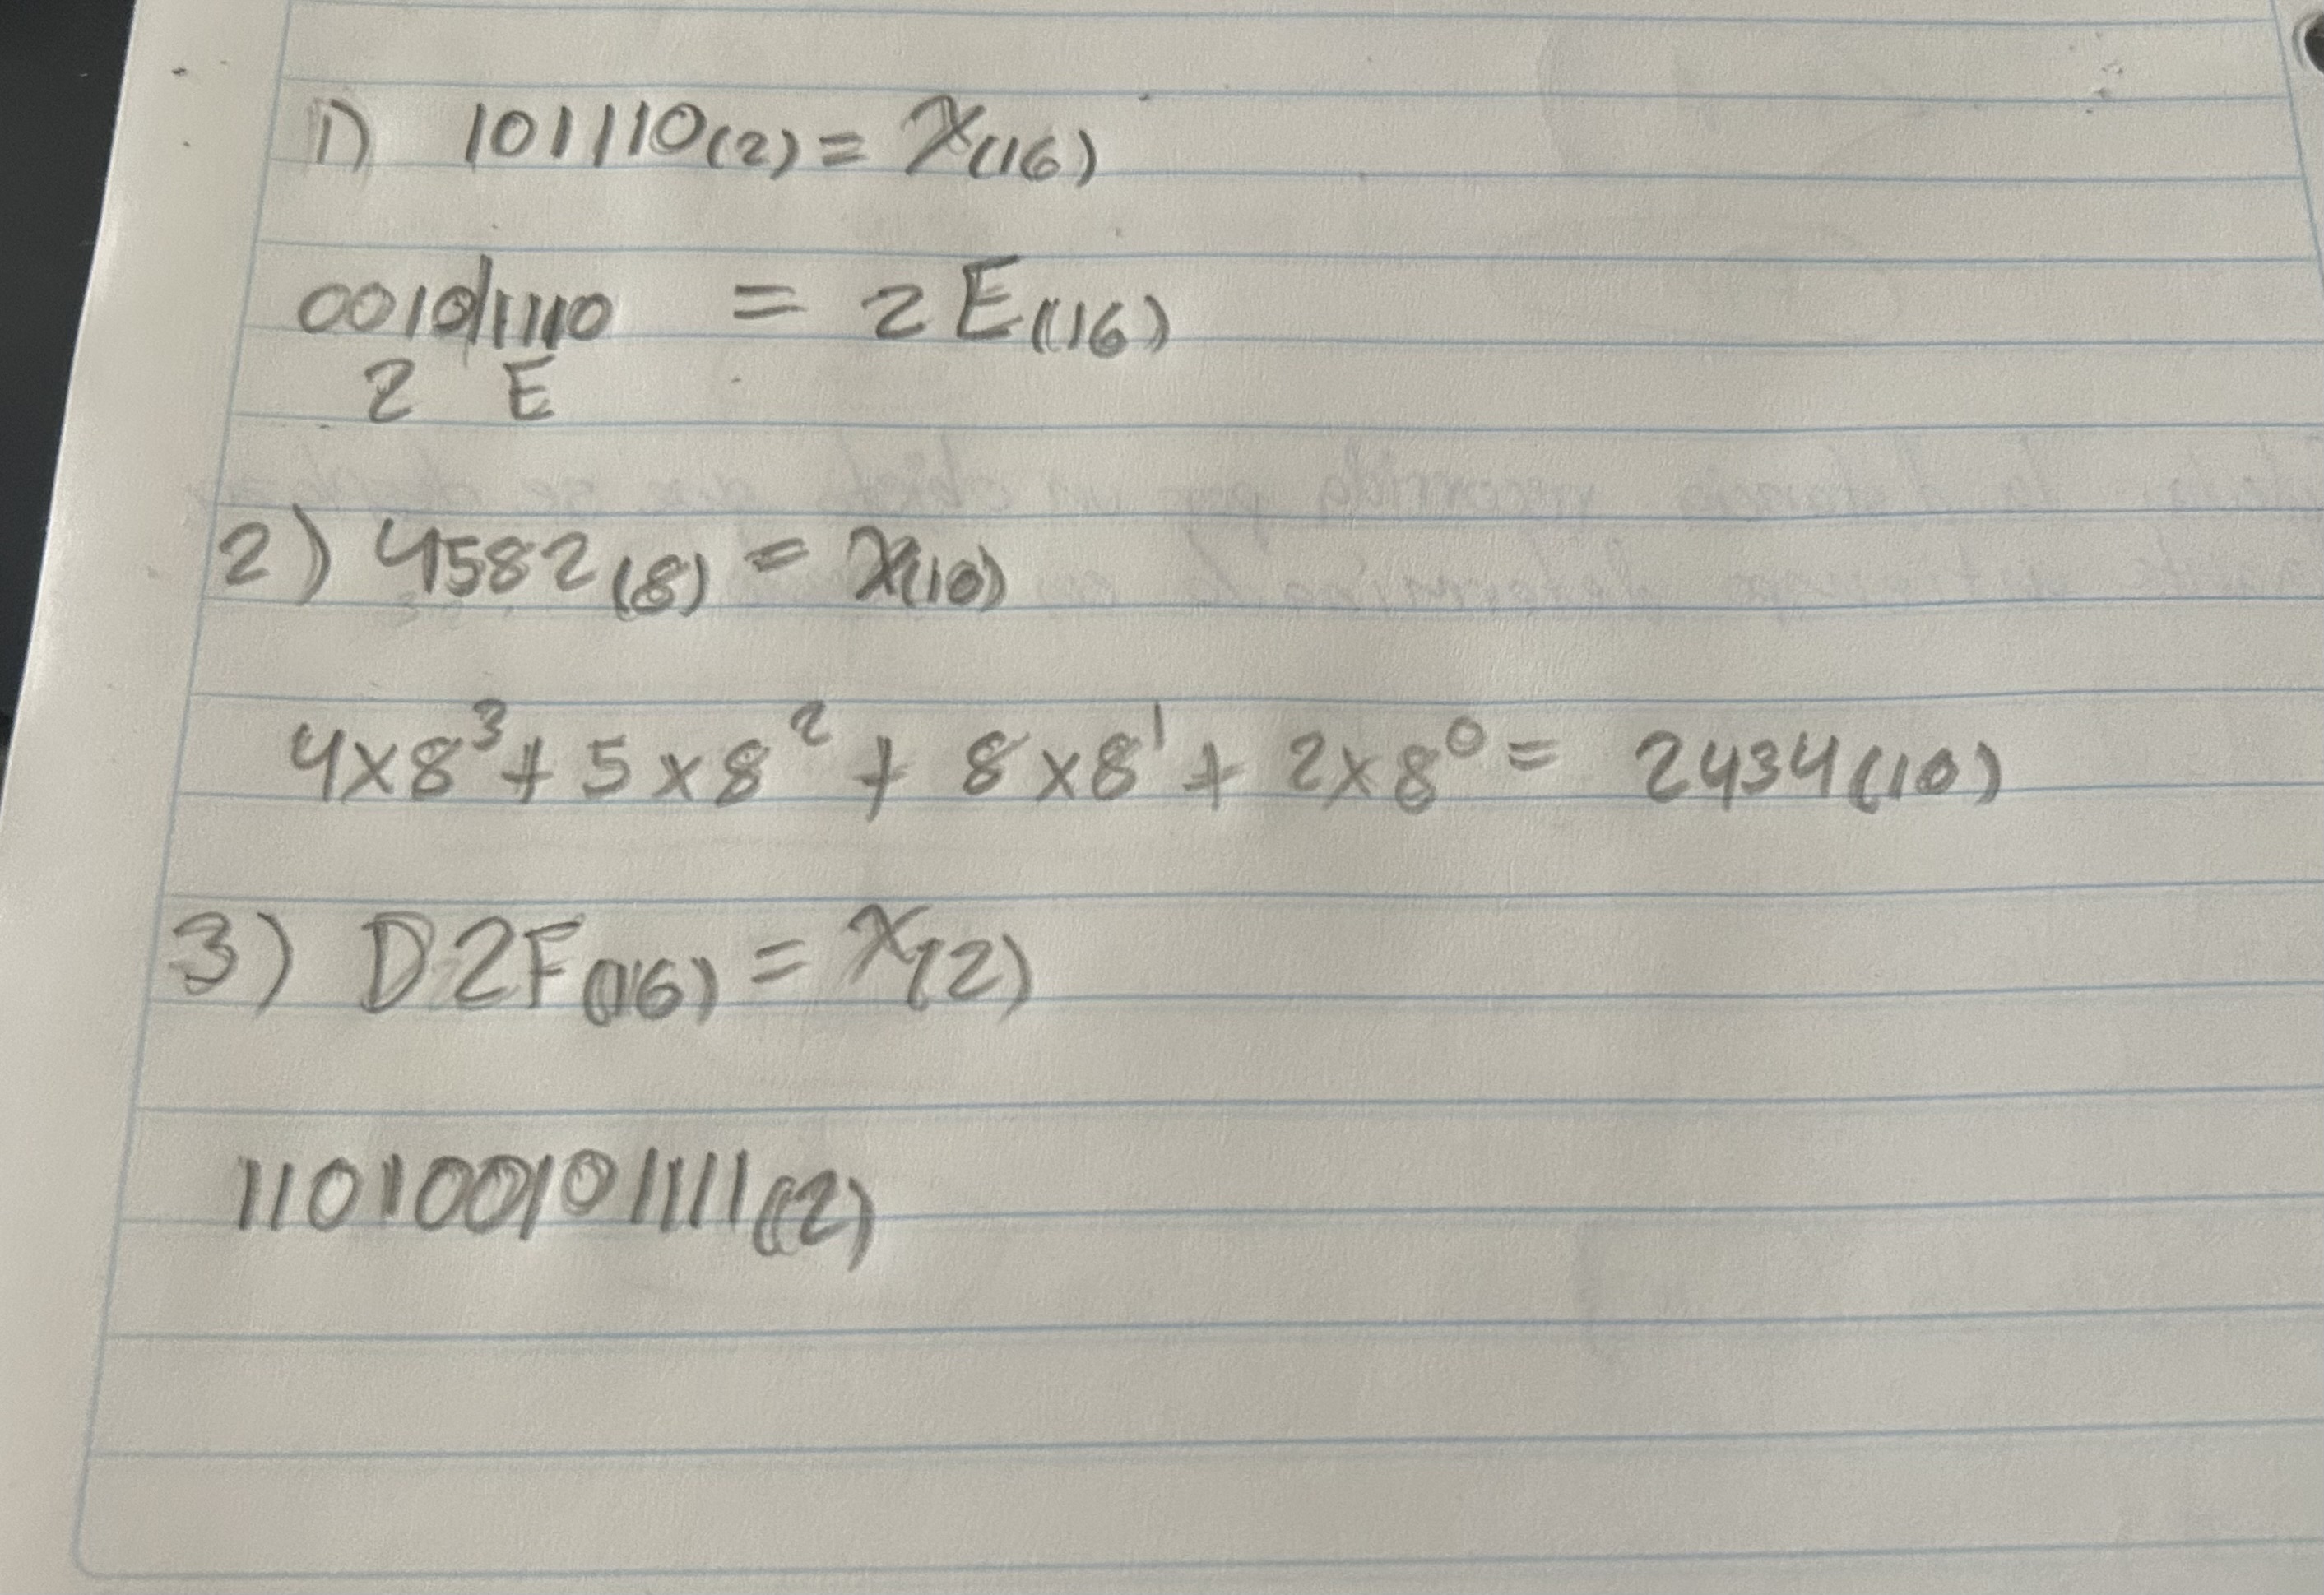 1) 101110(2) = X(16)
0010|1110 = 2E(16)
2 E
2) 4582(8) = X(10)
4x8³+ 5x8² + 8x8¹ + 2x8⁰ = 2434(10)
3) D2F(16) = X(2)
110100101111(2)